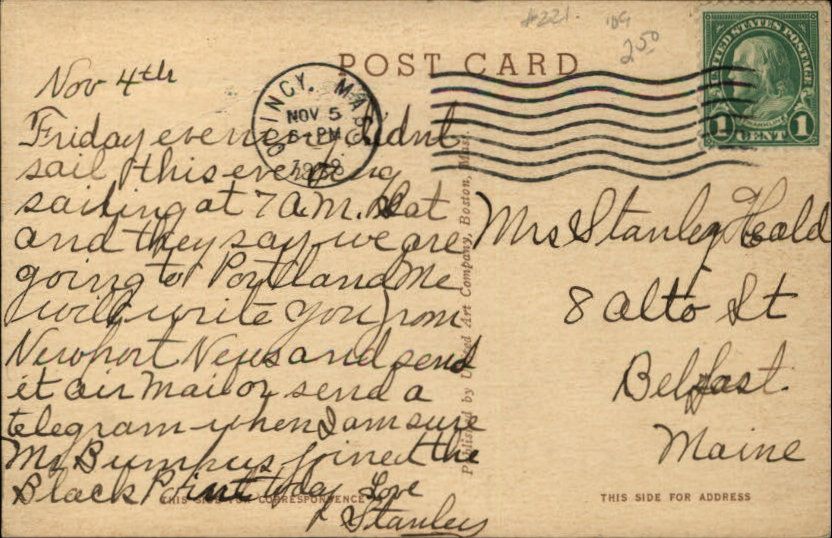 #221.
2.50
POST CARD
UNITED STATES POSTAGE
1 CENT 1
QUINCY, MASS.
NOV 5
5-PM
Nov 4th
Friday evening didnt
sail this evening
sailing at 7 A.M. Sat
and they say we are
going to Portland Me
will write you from
Newport News and send
it air Mail or send a
telegram when I am sure
Mr Bumpus joined the
Black Point today Love
Stanley
Mrs Stanley Heald
8 Alto St
Belfast.
Maine
Published by United Art Company, Boston, Mass.
THIS SIDE FOR CORRESPONDENCE
THIS SIDE FOR ADDRESS